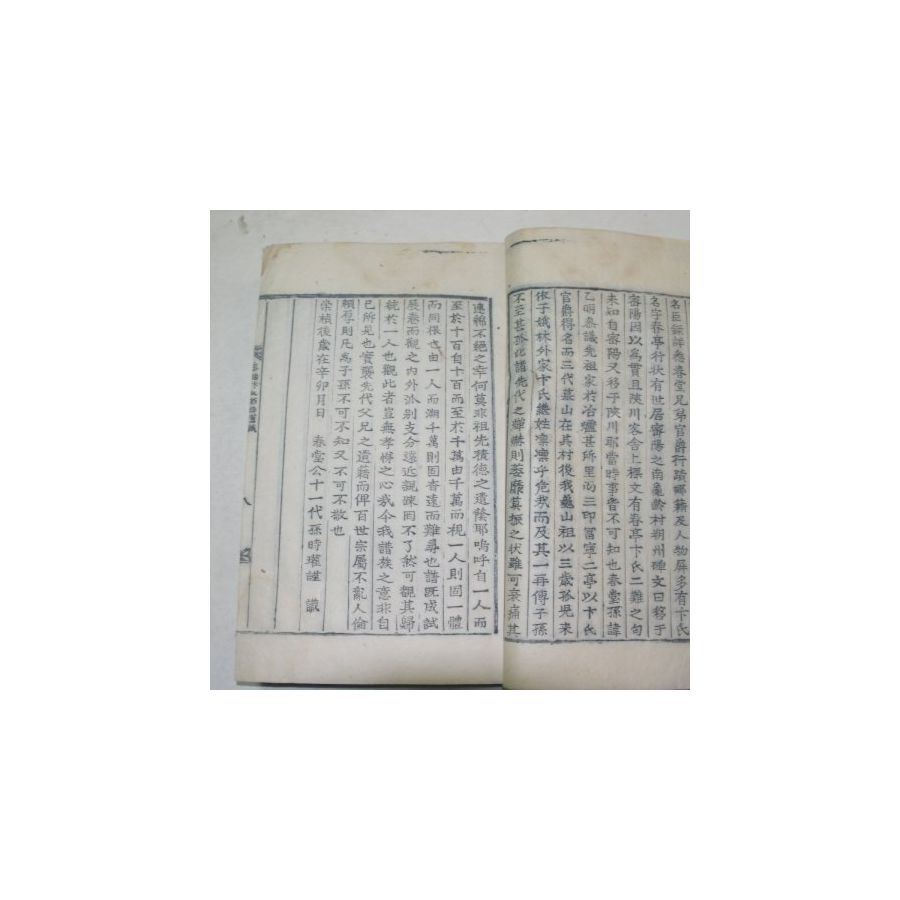 名臣錄詳卷春堂兄弟官爵行蹟鄕籍及人物屛多有卞氏
名字春亭行狀有世居密陽之南龜齡村朔州碑文曰移于
密陽因以爲貫且陜川客舍上樑文有春亭卞氏二難之句
未知自密陽又移于陜川耶當時事昔不可知也春堂孫諱
乙明參議先祖家於冶爐甚所里而三印冨寧二亭以卞氏
官爵得名而三代墓山在其村後我龜山祖以三歲孤兒來
依于娥林外家卞氏繼姓凜凜乎危哉而及其一再傳子孫
不至甚於此諸先代之蟬赫則萎靡莫振之狀雖可哀痛其
連綿不絶之幸何莫非祖先積德之遺蔭耶嗚呼自一人而
至於十百自十百而至於千萬由千萬而視一人則固一體
而同根也由一人而溯千萬則固杳遠而難尋也譜旣成試
展卷而觀之內外派別支分遠近親疎罔不了然可觀其歸
統於一人也觀此者豈無孝悌之心哉今我譜族之意非自
己所見也實襲先代父兄之遺籍而俾百世宗屬不亂人倫
賴厚則凡爲子孫不可不知又不可不敬也
崇禎後歲在辛卯月日 春堂公十一代孫時瓘謹 識
八